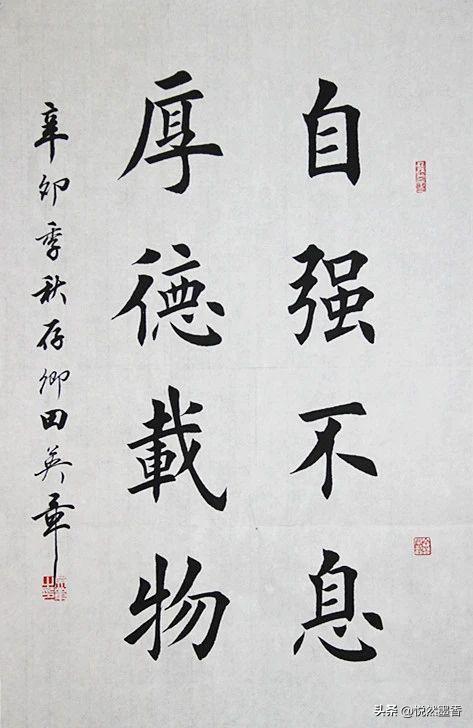 自强不息
厚德載物
辛卯季秋存卿田英章
头条 @悦然墨香